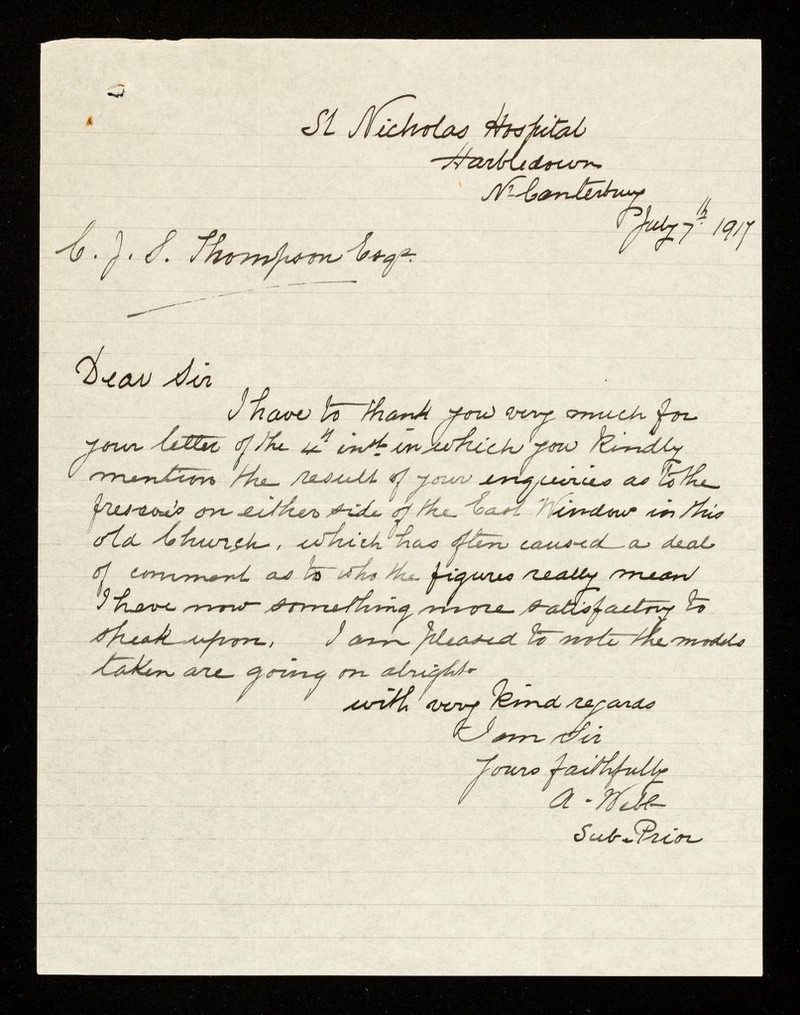 St Nicholas Hospital
Harbledown
Nr Canterbury
July 7th 1917
C. J. S. Thompson Esqr.
Dear Sir
I have to thank you very much for
your letter of the 4th inst in which you kindly
mention the result of your enquiries as to the
frescoe's on either side of the East Window in this
old Church, which has often caused a deal
of comment as to who the figures really mean
I have now something more satisfactory to
speak upon. I am pleased to note the models
taken are going on alright
with very kind regards
I am Sir
Yours faithfully
A. Webb
Sub-Prior